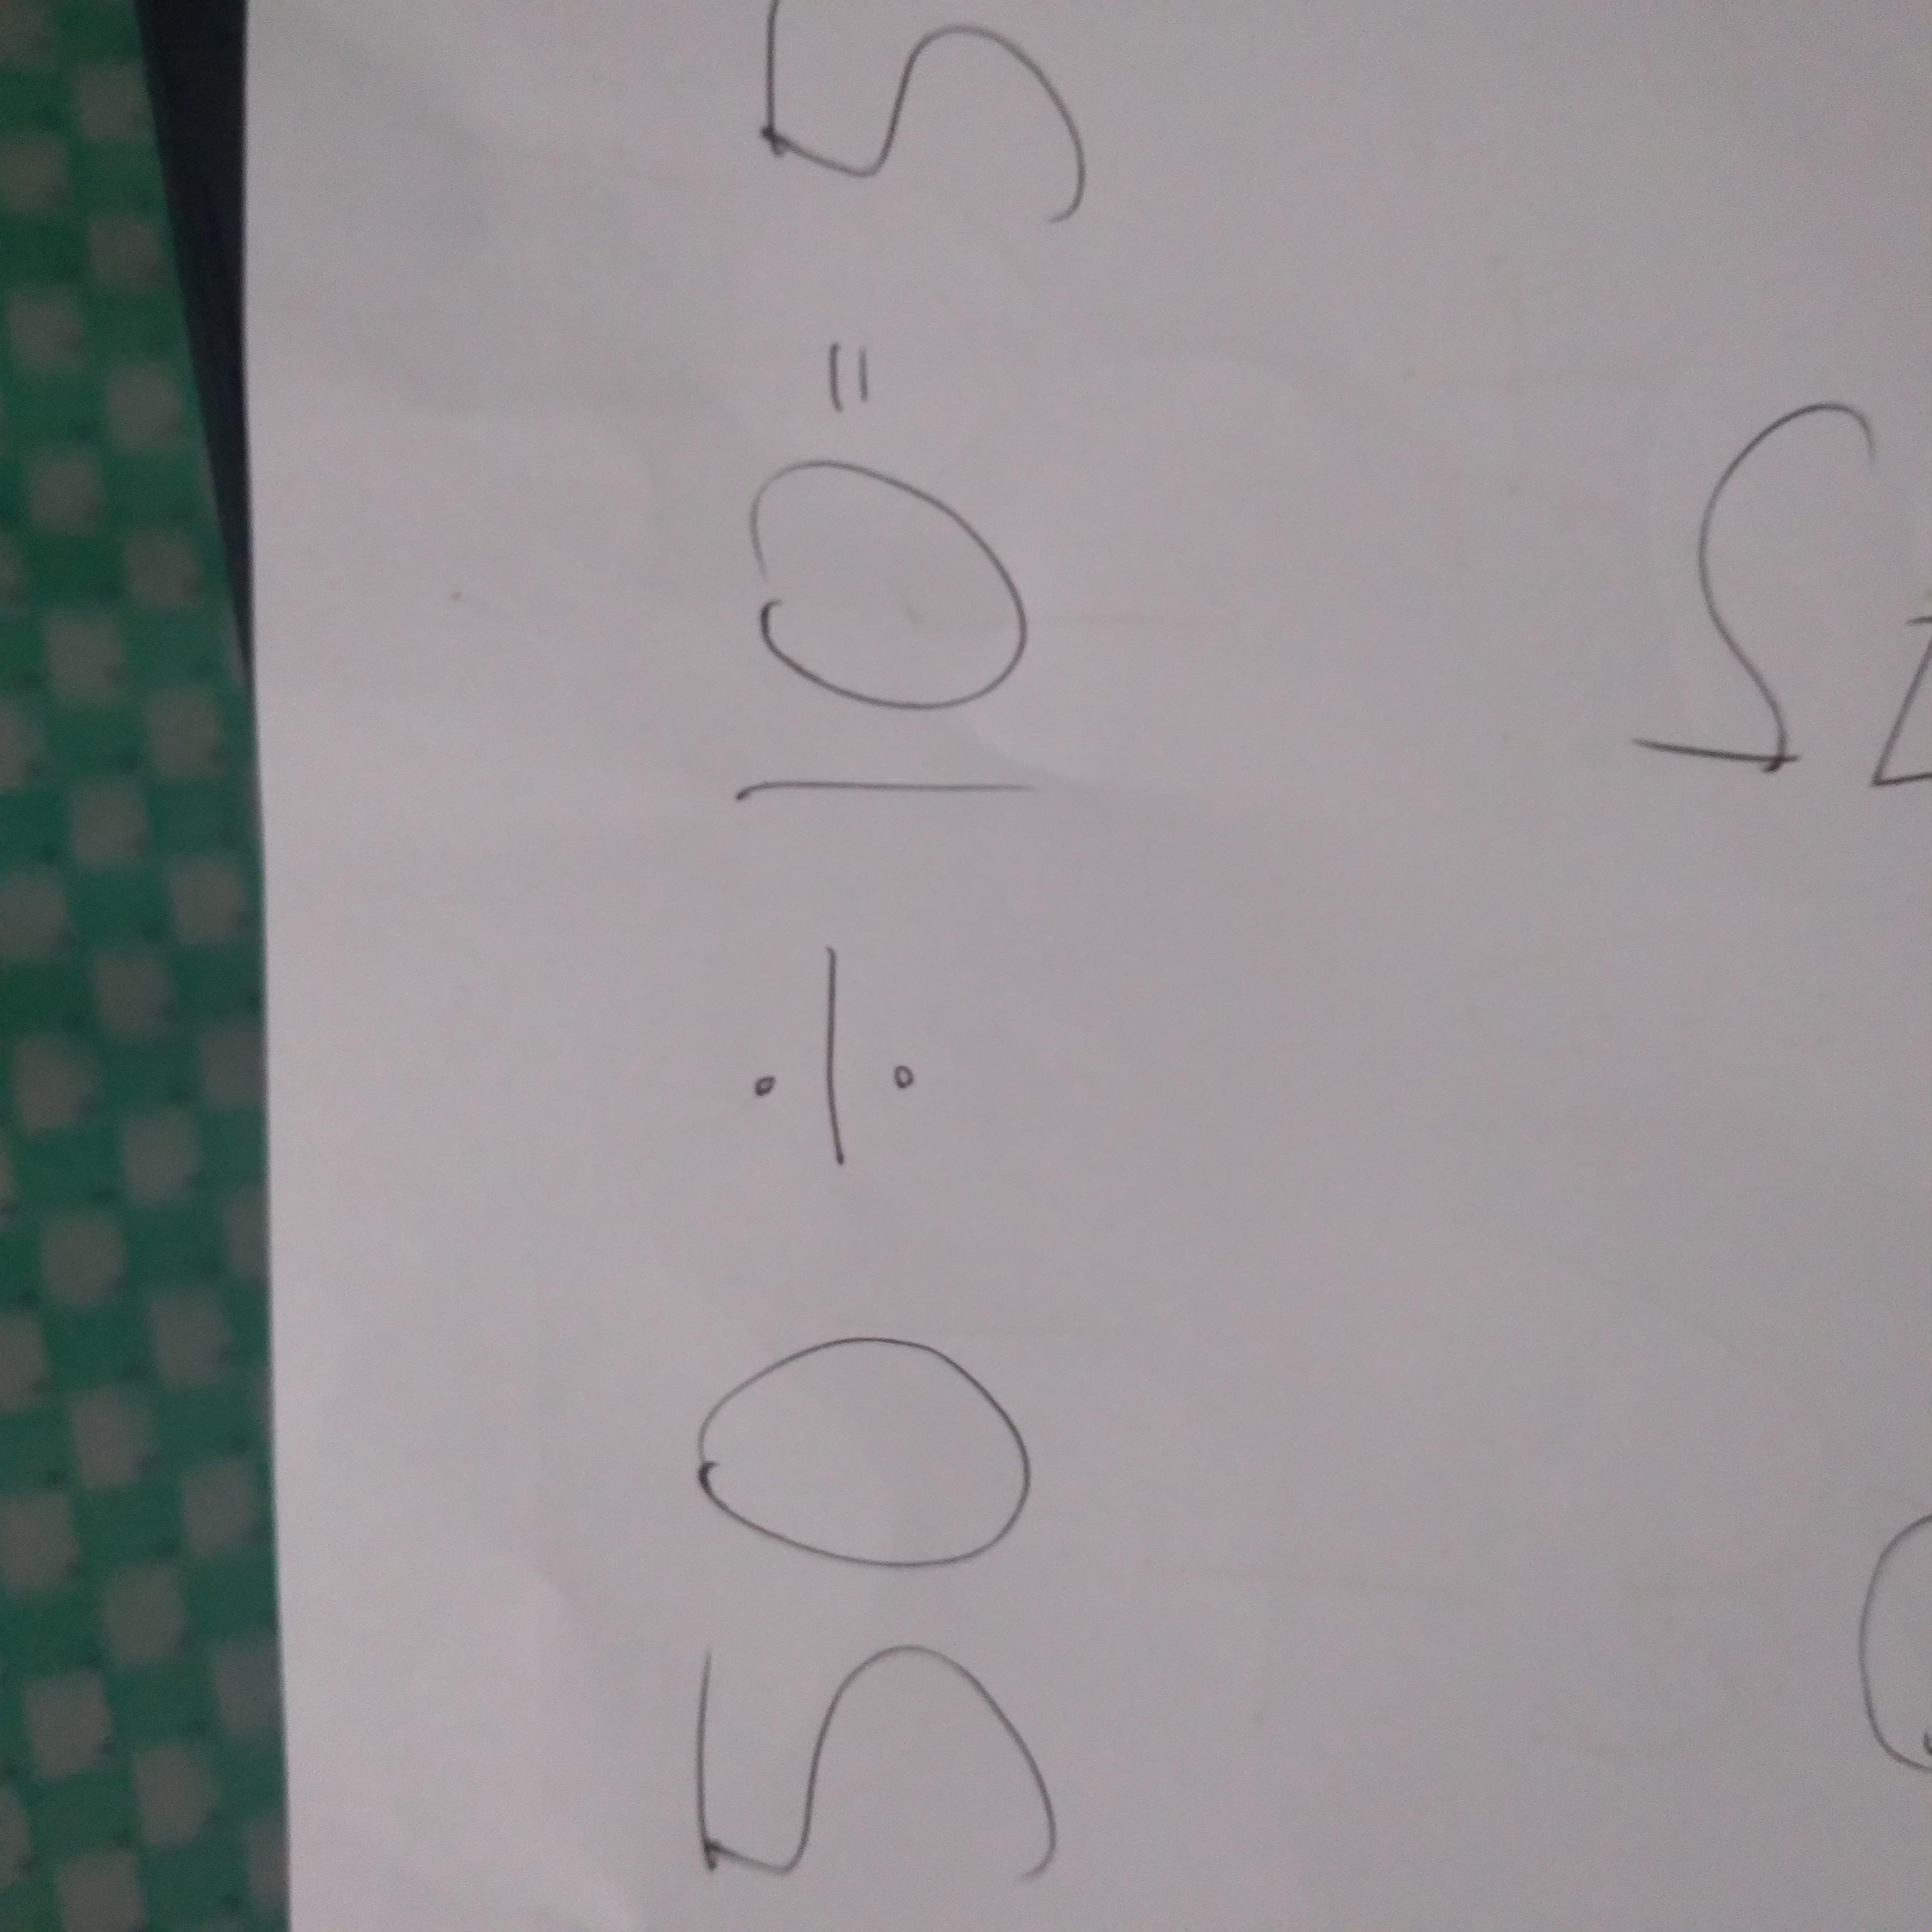 50 ÷ 10 = 5
5